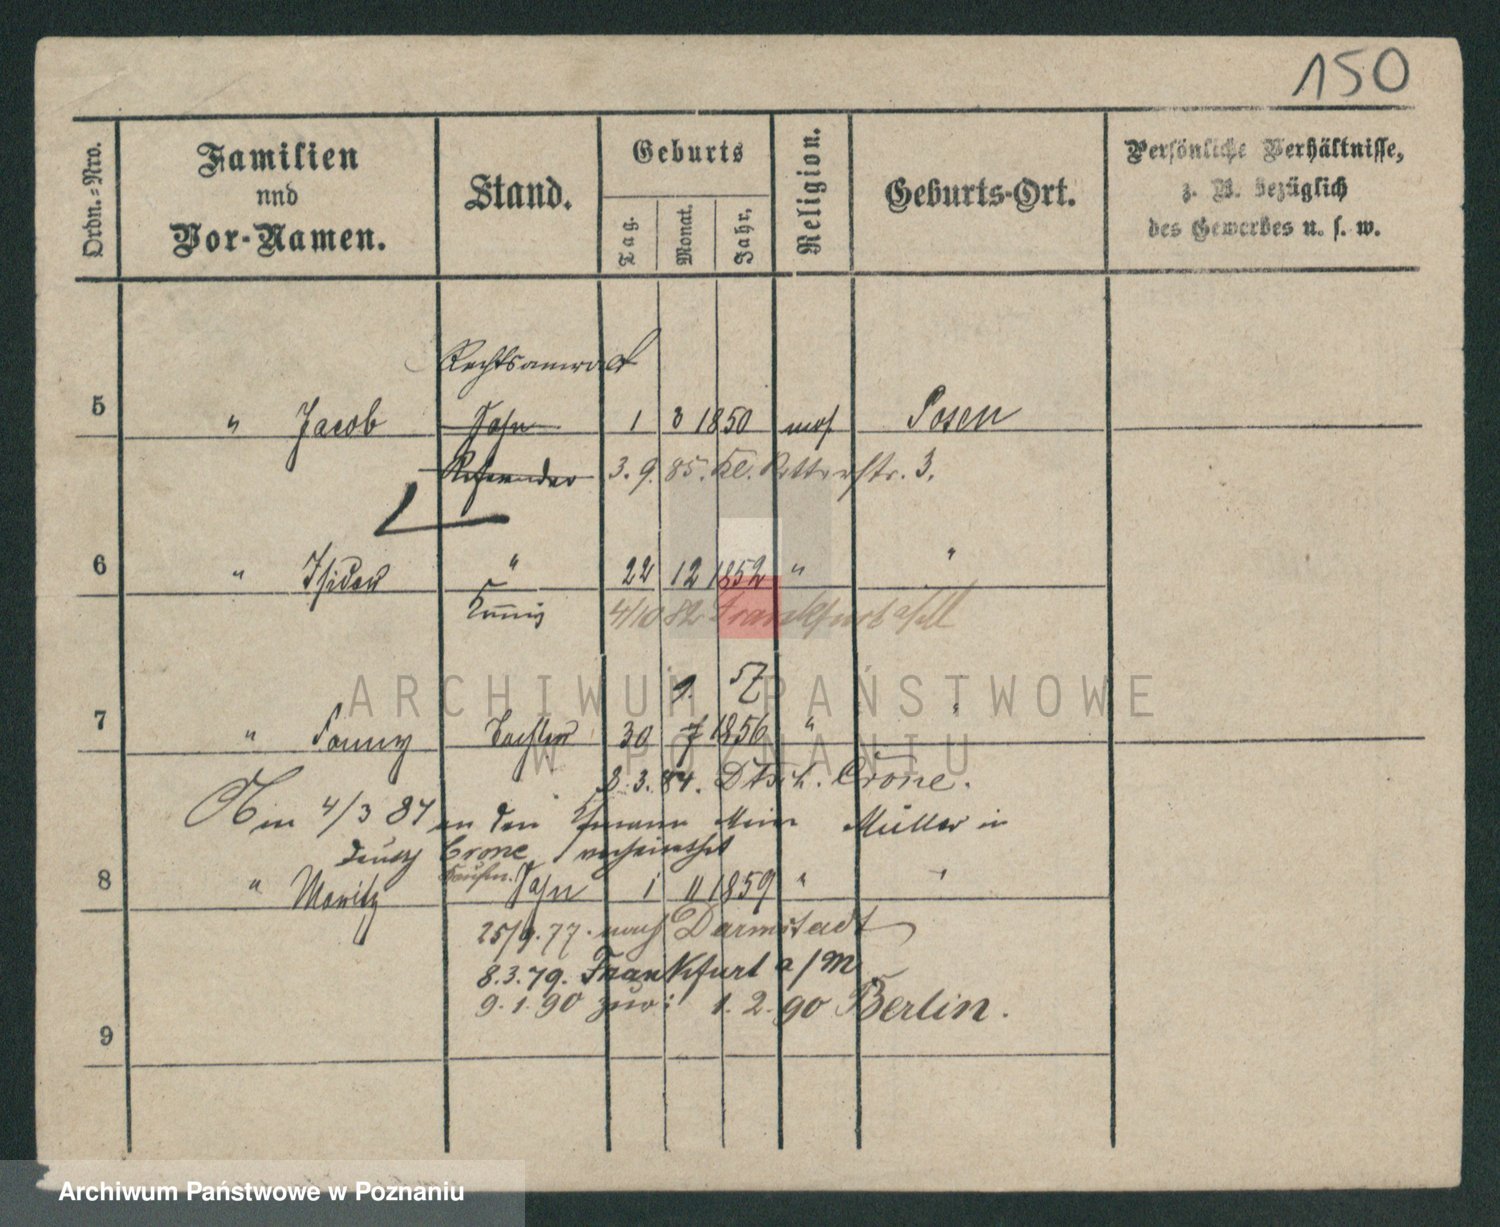 150
Ordn.=Nro.
Familien
nnd
Vor-Namen.
Stand.
Geburts
Tag.
Monat.
Jahr.
Religion.
Geburts-Ort.
Persönliche Verhältnisse,
z. B. bezüglich
des Gewerbes u. s. w.
Rechtsanwalt
5 " Jacob Sohn 1 3 1850 mos Posen
Referendar 3. 9. 85. Kl. Ritterstr. 3.
6 " Isidor " 22 12 1852 " "
4/10 82 Frankfurt
9. 57
7 " Fanny Tochter 30 7 1856 " "
8. 3. 84. Dtsch. Crone.
4/3 84 an den Kfmann Meier Müller in
Deutsch Crone verheirathet
Kaufm.
8 " Moritz Sohn 1 11 1859 " "
25/9. 77. nach Darmstadt
8. 3. 79. Frankfurt a/M
9. 1. 90 zur: 1. 2. 90 Berlin.
9
ARCHIWUM PAŃSTWOWE
W POZNANIU
Archiwum Państwowe w Poznaniu